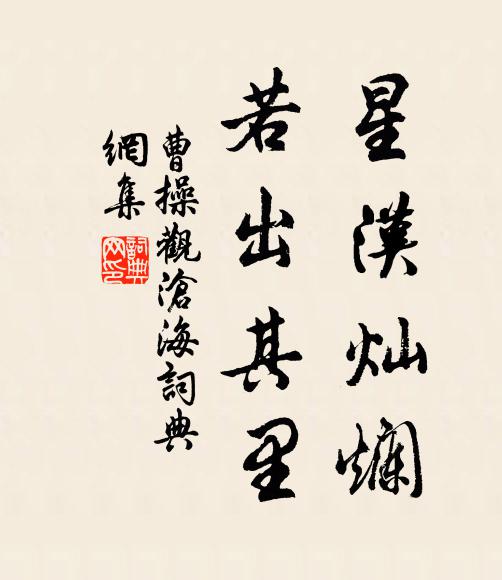 星漢灿爛
若出其里
曹操觀滄海詞典
網集
詞典
网印